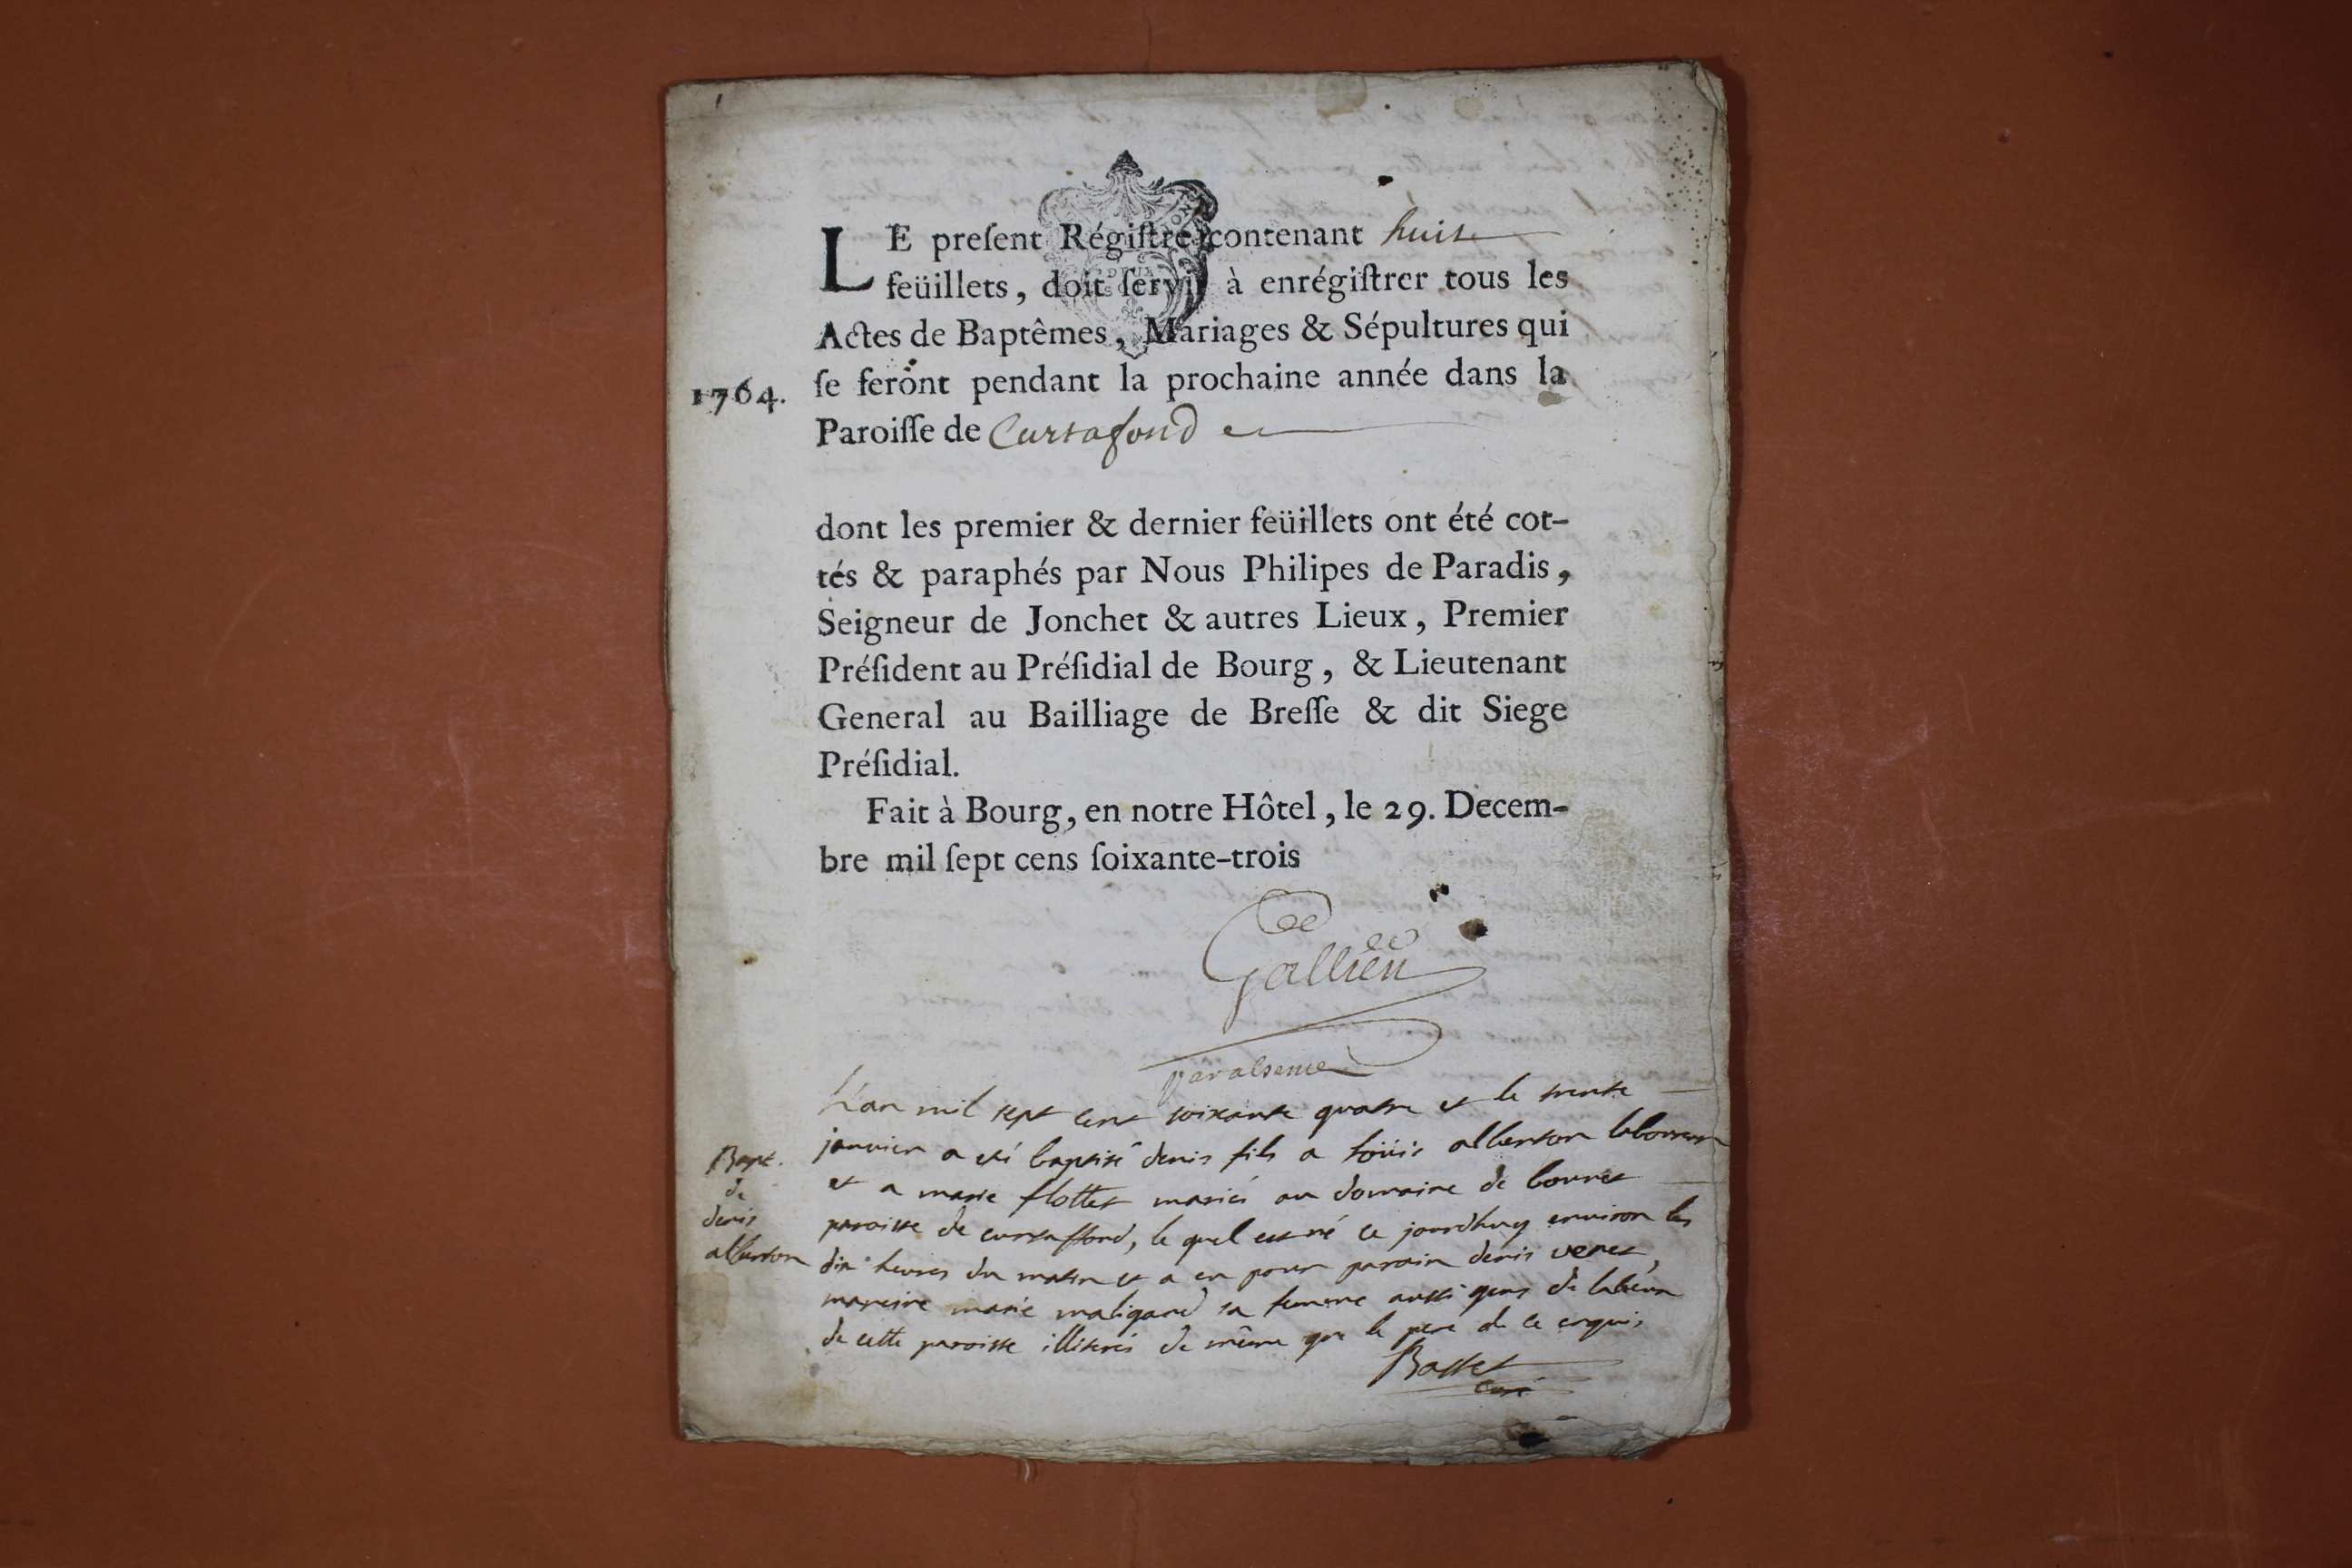 1
LE preſent Régiſtre contenant huit
feüillets, doit ſervir à enrégiſtrer tous les
Actes de Baptêmes, Mariages & Sépultures qui
1764. ſe feront pendant la prochaine année dans la
Paroiſſe de Curtafond
dont les premier & dernier feüillets ont été cot-
tés & paraphés par Nous Philipes de Paradis,
Seigneur de Jonchet & autres Lieux, Premier
Préſident au Préſidial de Bourg, & Lieutenant
General au Bailliage de Breſſe & dit Siege
Préſidial.
Fait à Bourg, en notre Hôtel, le 29. Decem-
bre mil ſept cens ſoixante-trois
Gallien
par absence
L'an mil sept cent soixante quatre et le trente
janvier a eté baptisé denis fils a loüis alberton laboureur
et a marie flottet mariés au domaine de
paroisse de curtaffond, le quel est né ce jourdhuy environ les
dix heures du matin et a eu pour parain denis veret,
mareine marie maligand sa femme aussi gens de labeur
de cette paroisse illiterés de même que le pere de ce enquis
Bapt.
de
denis
alberton
Basset
curé